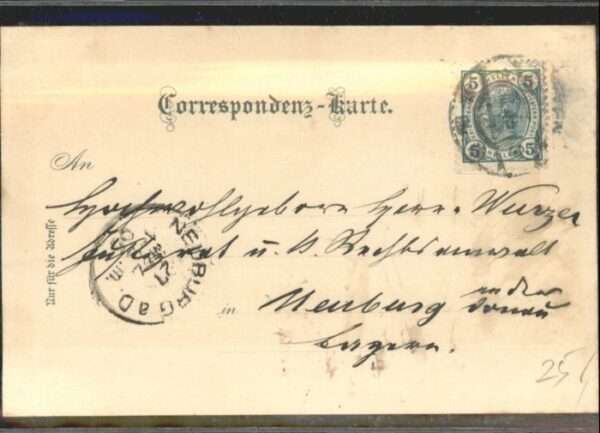 Correspondenz-Karte.
5 5
5 5
An
Hochwohlgeboren Herrn Wurzer
Justizrat u. K. Rechtsanwalt
in Neuburg an der
Donau
Bayern.
Nur für die Adresse
NEUBURG a D
25